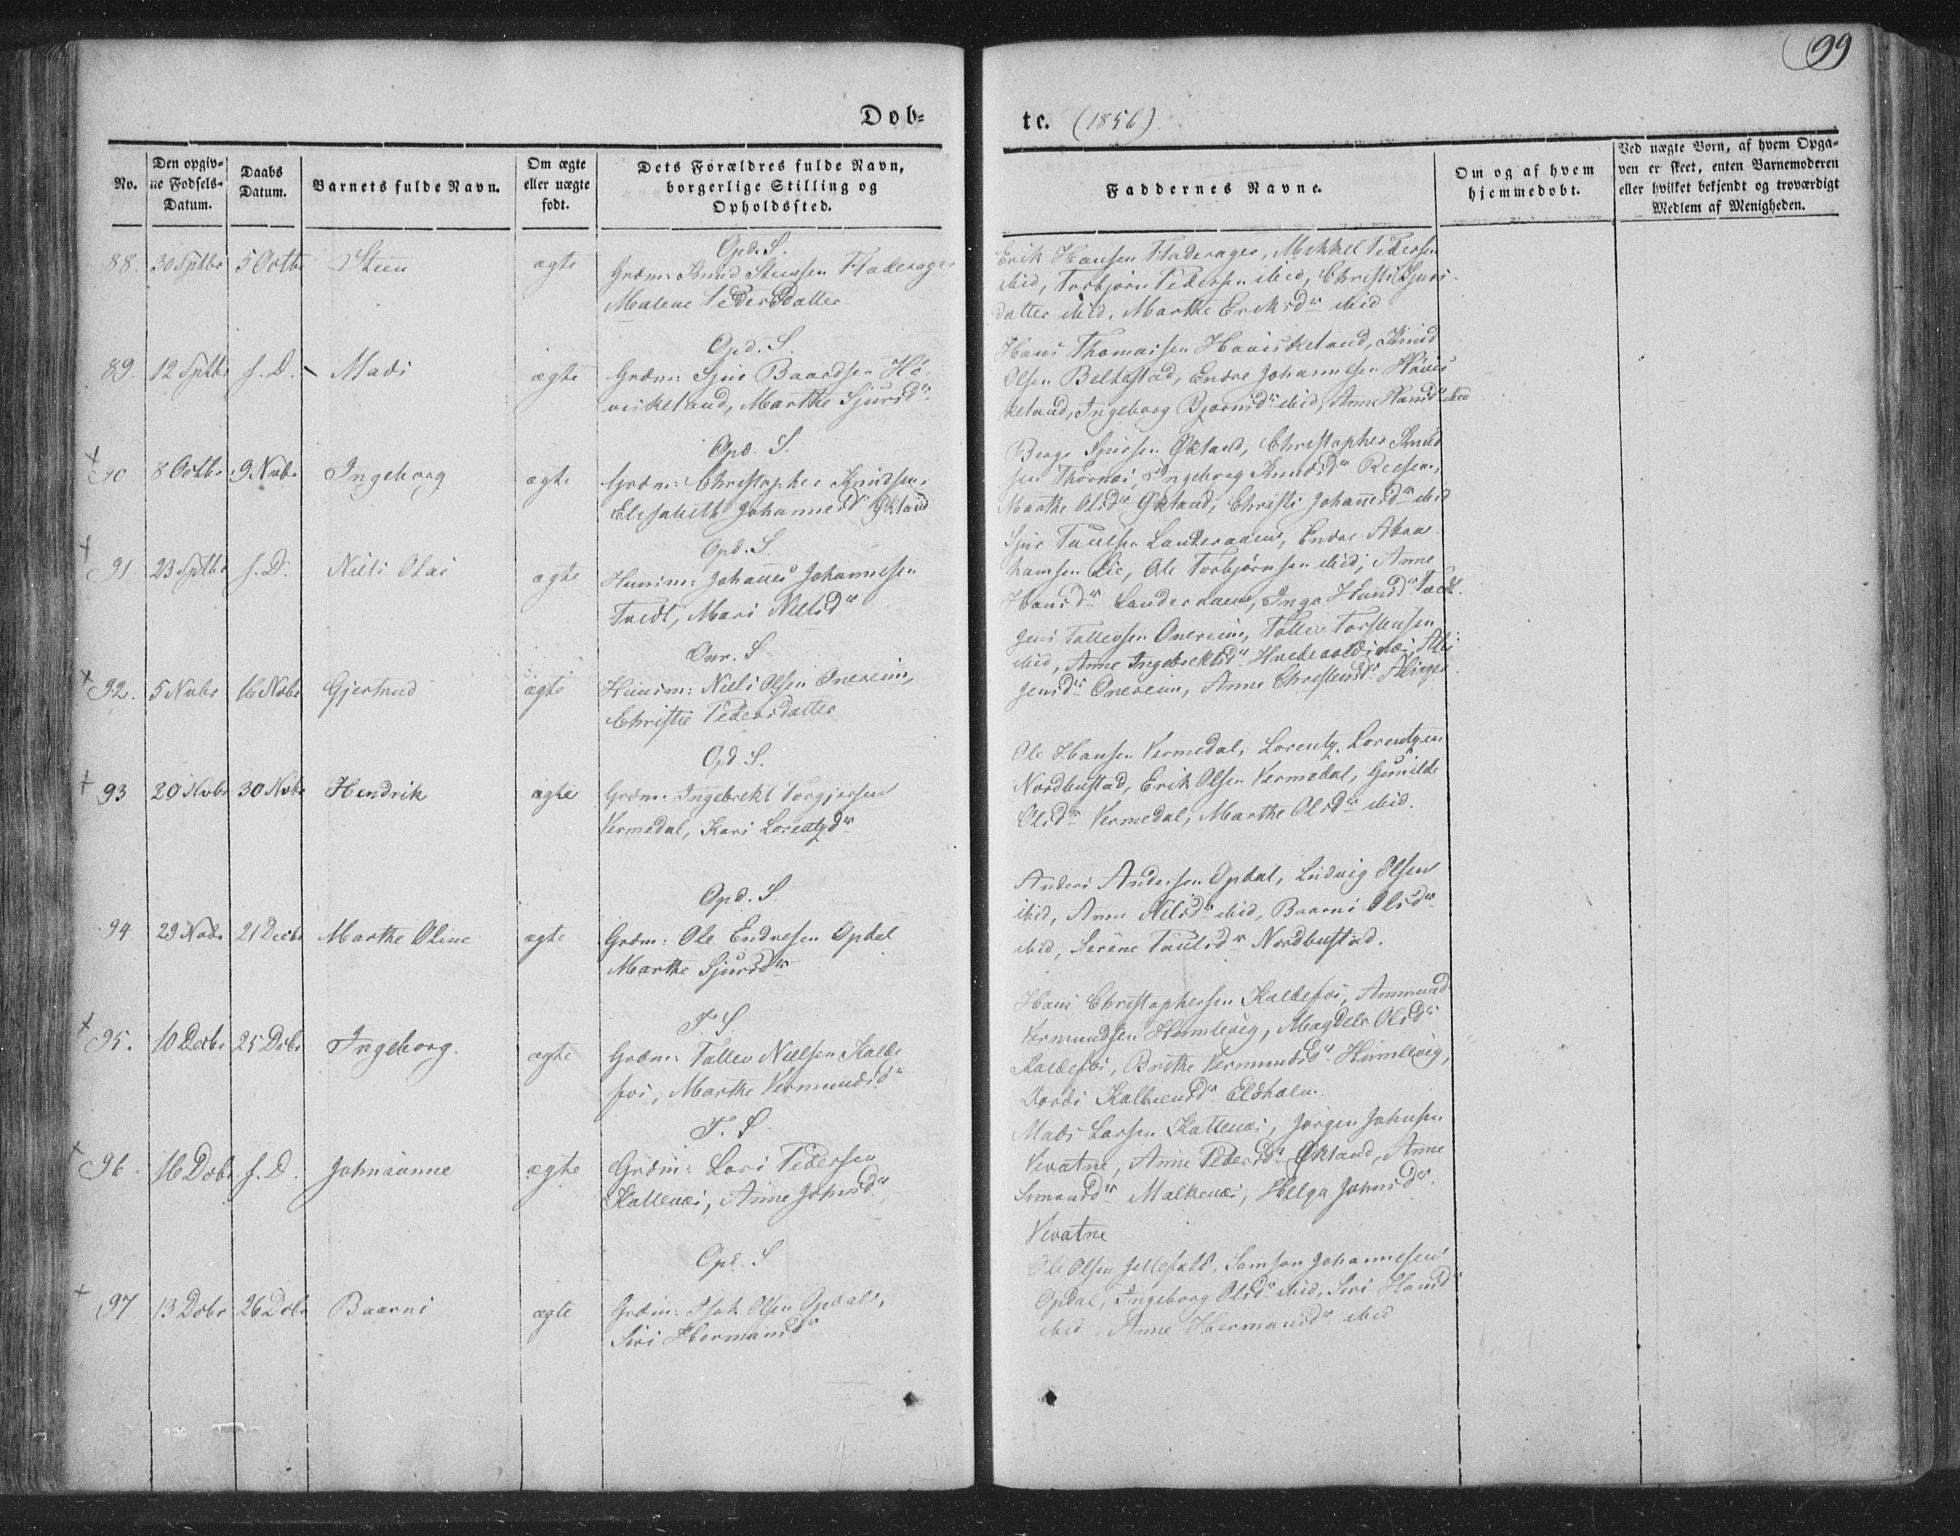 99
Døb=
te. (1856)
No.
Den opgiv-
ne Fødsels-
Datum.
Daabs
Datum.
Barnets fulde Navn.
Om ægte
eller uægte
født.
Dets Forældres fulde Navn,
borgerlige Stilling og
Opholdssted.
Faddernes Navne.
Om og af hvem
hjemmedøbt.
Ved uægte Børn, af hvem Opga-
ven er skeet, enten Barnemoderen
eller hvilket bekjendt og troværdigt
Medlem af Menigheden.
88. 30 Sptbr 5 Octbr Steen ægte
Opd. S.
Grdm: Knud Steensen Fladerager
Malene Pedersdatter
Erik Hansen Fladerager, Mikkel Pedersen
ibid, Torbjørn Pedersen ibid, Christi Sjurs-
datter ibid, Marthe Eriksdr ibid
89. 12 Sptbr s. D. Mads ægte
Opd. S.
Grdm: Sjur Baardsen Hø-
viskeland, Marthe Sjursdr
Hans Thomassen Høviskeland, Knud
Olsen Beltestad, Endre Johannesen Høvis
keland, Ingeborg Bjørnsdr ibid, Anne Hansdr ibid
+ 90 8 Octbr 9 Nvbr Ingeborg ægte
Opd. S.
Grdm: Christopher Knudsen,
Elisabeth Johannesdr Økland
Berge Sjursen Økland, Christopher Knud
sen, Ingeborg Knudsdr
Marthe Olsdr Økland, Christi Johannesdr ibid
+ 91 23 Sptbr s. D. Niels Olai ægte
Opd. S.
Huusm: Johannes Johannesen
Tvedt, Mari Nielsdr
Sjur Paulsen Landeraaen, Endre Abra-
hamsen Lie, Ole Torbjørnsen ibid, Anne
Hansdr Landeraaen, Inga Hansdr Tvedt.
+ 92. 5 Nvbr 16 Nvbr Gjertrud ægte
Onr. S
Huusm: Niels Olsen Onereim,
Christie Pedersdatter
Jens Tollevsen Onereim, Tollev Torstensen
ibid, Anne Ingebrektsdr
Jensdr Onereim, Anne Christensdr
+ 93 20 Nvbr 30 Nvbr Hendrik ægte
Opd. S.
Grdm: Ingebrekt Torgjersen
Vermedal, Kari Lorentzdr
Ole Hansen Vermedal, Lorentz Lorentzen
Nordhustad, Erik Olsen Vermedal, Gunilde
Olsdr Vermedal, Marthe Olsdr ibid.
94. 29 Nvbr 21 Decbr Marthe Oline ægte
Opd. S.
Grdm: Ole Endresen Opdal
Marthe Sjursdr
Anders Andersen Opdal, Ludvig Olsen
ibid, Anne Nilsdr ibid, Baarni Olsdr
ibid, Serene Paulsdr Nordhustad.
+ 95. 10 Decbr 25 Dcbr Ingeborg. ægte
F. S
Grdm: Tollev Nielsen Kalde
fos, Marthe Vermundsdr
Hans Christophersen Kaldefos, Ammund
Vermundsen Himlevig, Magdele Olsdr
Kaldefos, Brithe Vermundsdr Himlevig,
Dordi Eldholm.
+ 96. 16 Dcbr s. D. Johnanne ægte
F. S
Grdm: Lars Pedersen
Kattenes, Anne Johnsdr
Mads Larsen Kattenes, Jørgen Johnsen
Vevatne, Anne Pedersdr Økland, Anne
Simonsdr Malkenes, Helga Johnsdr
Vevatne
+ 97. 13 Dcbr 26 Dcbr Baarni ægte
Opd. S
Grdm: Isak Olsen Opdal,
Siri Hermansdr
Ole Olsen, Samson Johannesen
Opdal, Ingeborg Olsdr ibid, Siri Hansdr
ibid, Anne Hermansdr ibid